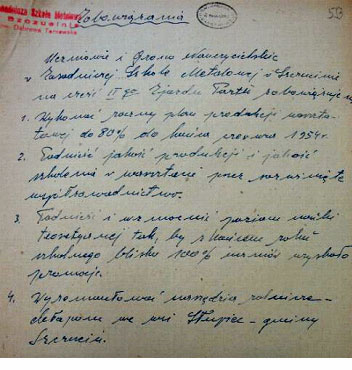 Zasadnicza Szkoła Metalowa
Szczucin
Dąbrowa Tarnowska
53
Zobowiązania
Uczniowie i Grono Nauczycielskie
Zasadniczej Szkole Metalowej w Szczucinie
na cześć II go Zjazdu Partii zobowiązują się
1. Wykonać roczny plan produkcji warszta-
towej do 80% do końca czerwca 1954 r.
2. Podnieść jakość produkcji i jakość
szkolenia w warsztacie przez
współzawodnictwo.
3. Podnieść i wzmocnić poziom nauki
teoretycznej tak, by z końcem roku
szkolnego blisko 100% uczniów uzyskało
promocję.
4. Wyremontować narzędzia rolnicze
chłopom we wsi Słupiec - gminy
Szczucin.